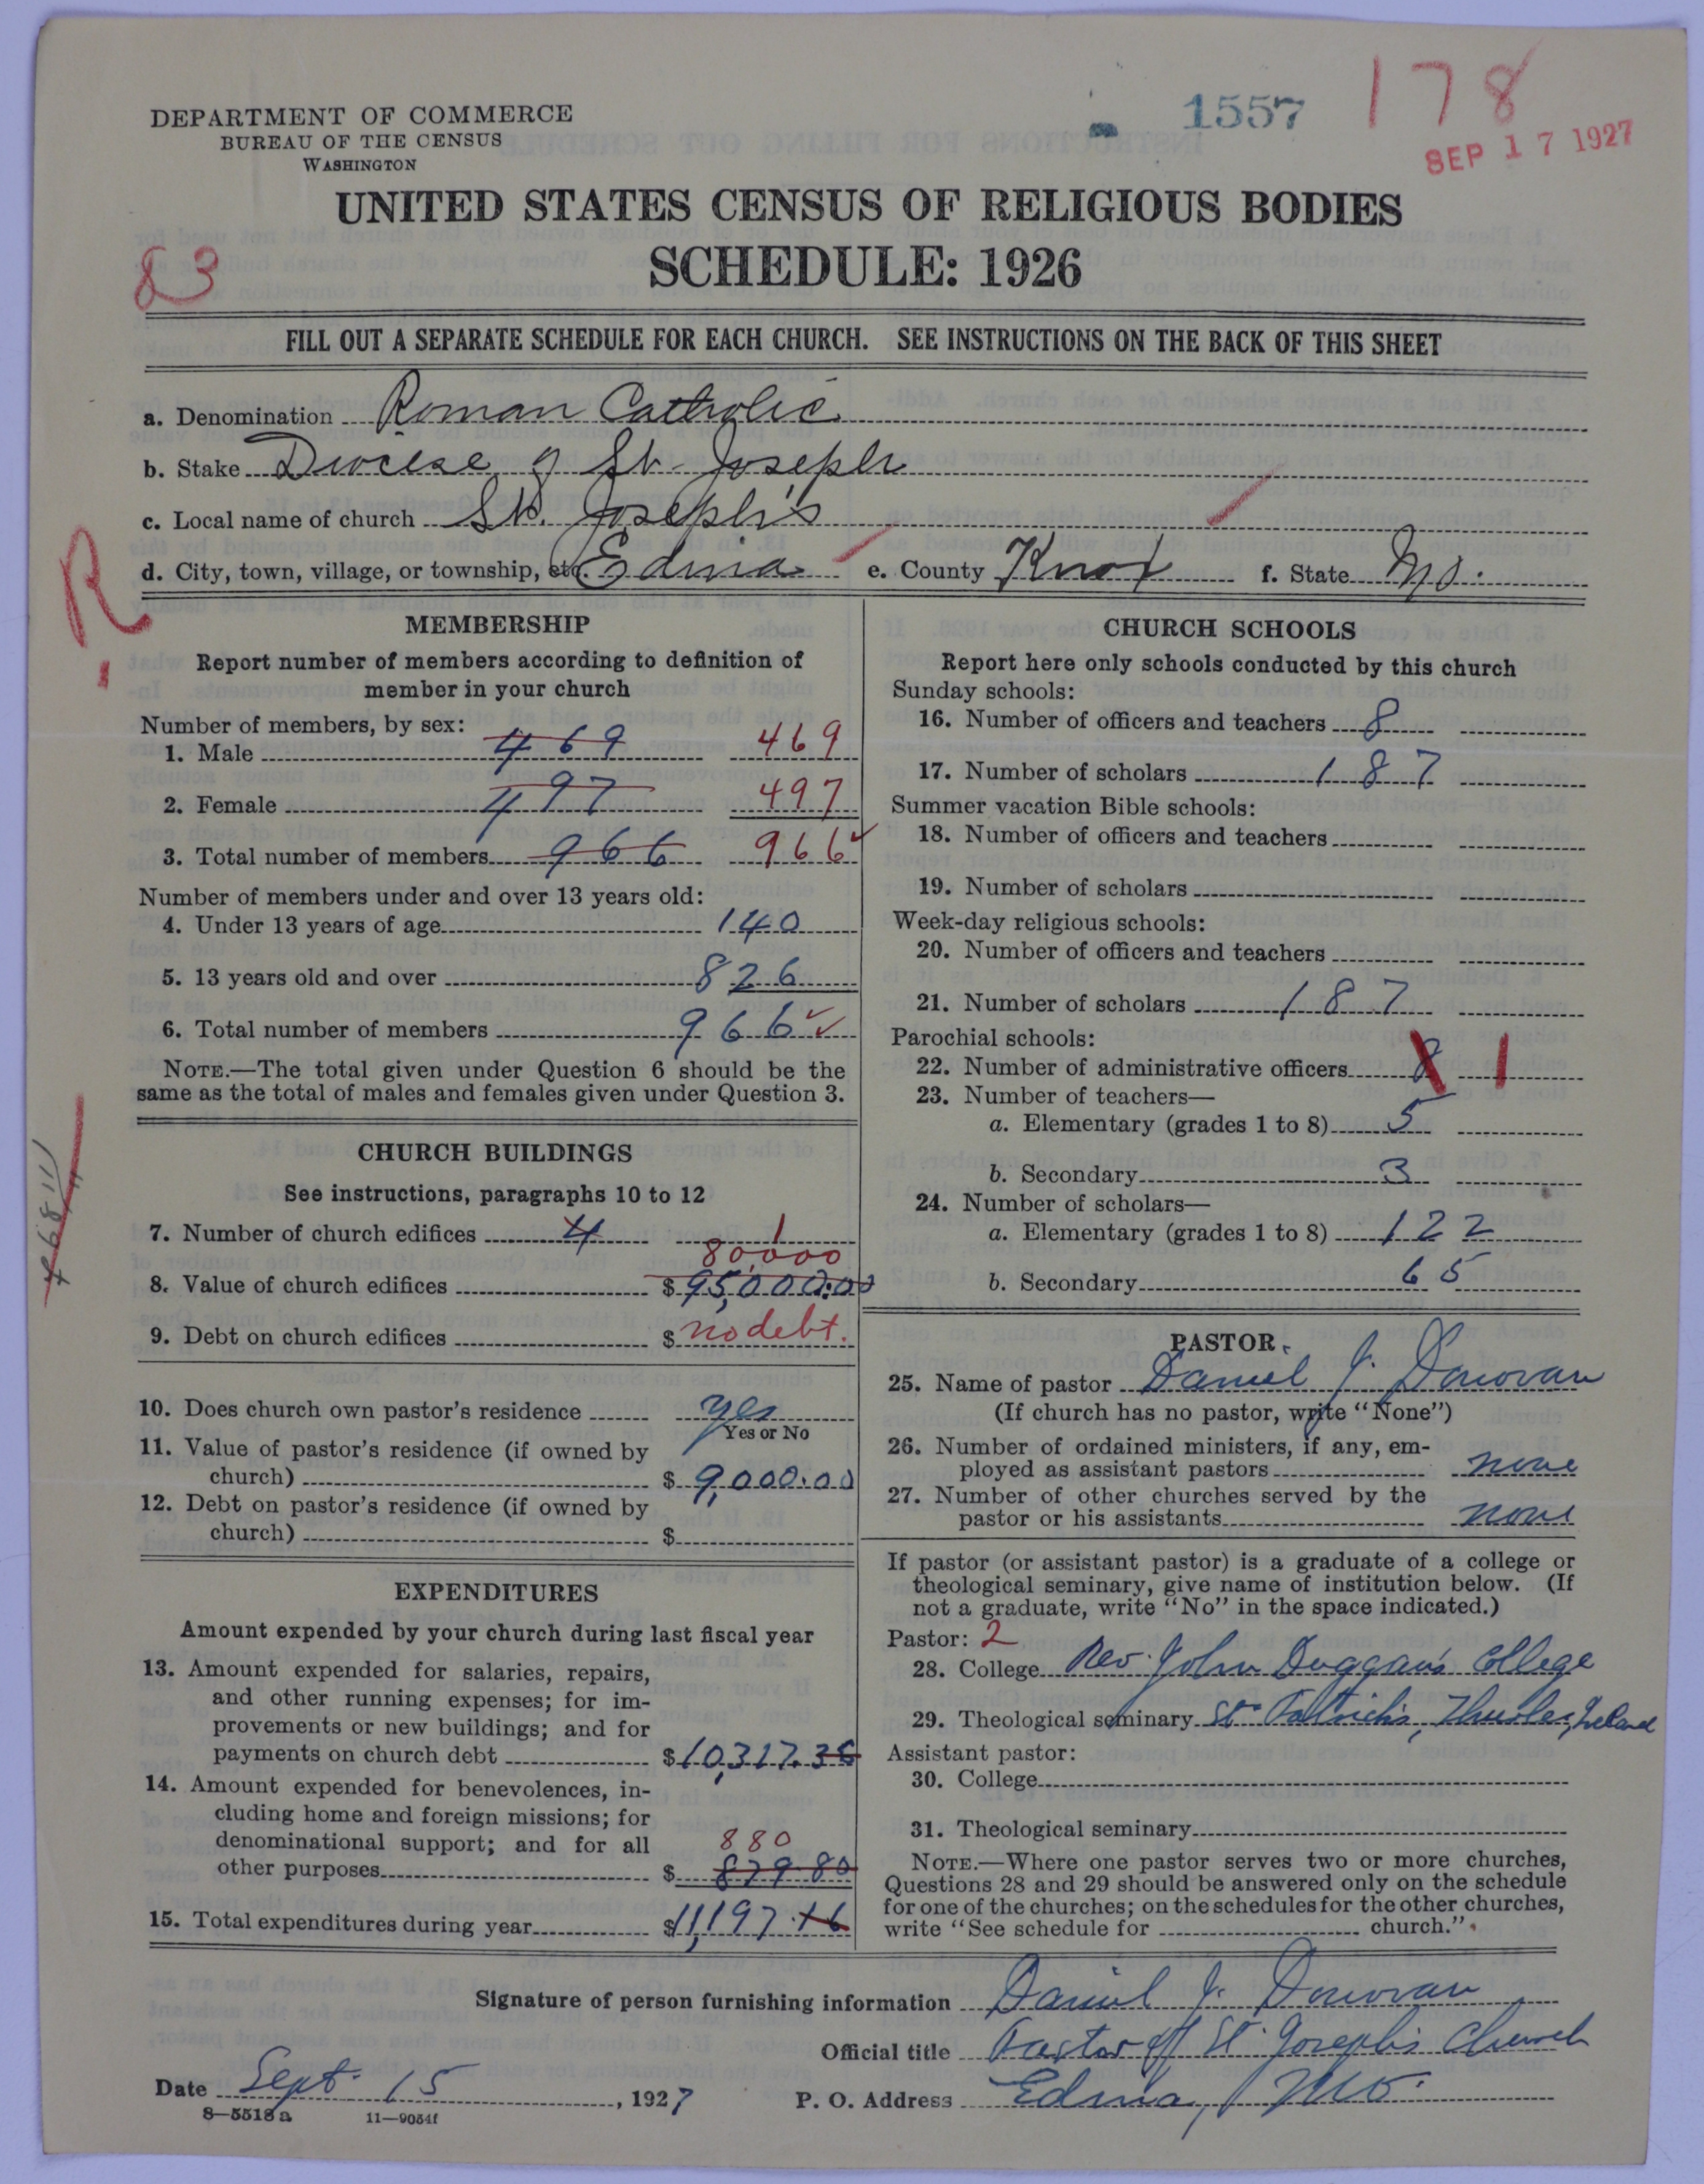 1557
178
SEP 17 1927
DEPARTMENT OF COMMERCE
BUREAU OF THE CENSUS
WASHINGTON
UNITED STATES CENSUS OF RELIGIOUS BODIES
SCHEDULE: 1926
83
FILL OUT A SEPARATE SCHEDULE FOR EACH CHURCH. SEE INSTRUCTIONS ON THE BACK OF THIS SHEET
a. Denomination Roman Catholic
b. Stake Diocese of St. Joseph
c. Local name of church St. Joseph's
d. City, town, village, or township, etc. Edina e. County Knox f. State Mo.
R.
MEMBERSHIP
Report number of members according to definition of
member in your church
Number of members, by sex:
1. Male 469 469
2. Female 497 497
3. Total number of members 966 966
Number of members under and over 13 years old:
4. Under 13 years of age 140
5. 13 years old and over 826
6. Total number of members 966
NOTE.—The total given under Question 6 should be the
same as the total of males and females given under Question 3.
CHURCH BUILDINGS
See instructions, paragraphs 10 to 12
7. Number of church edifices 4 1
80,000
8. Value of church edifices $95,000.00
9. Debt on church edifices $ no debt.
10. Does church own pastor's residence yes
Yes or No
11. Value of pastor's residence (if owned by
church) $ 9,000.00
12. Debt on pastor's residence (if owned by
church) $
EXPENDITURES
Amount expended by your church during last fiscal year
13. Amount expended for salaries, repairs,
and other running expenses; for im-
provements or new buildings; and for
payments on church debt $10,317.36
14. Amount expended for benevolences, in-
cluding home and foreign missions; for
denominational support; and for all
880
other purposes $ 879.80
15. Total expenditures during year $11,197.16
CHURCH SCHOOLS
Report here only schools conducted by this church
Sunday schools:
16. Number of officers and teachers 8
17. Number of scholars 187
Summer vacation Bible schools:
18. Number of officers and teachers
19. Number of scholars
Week-day religious schools:
20. Number of officers and teachers
21. Number of scholars 187
Parochial schools:
22. Number of administrative officers 8 1
23. Number of teachers—
a. Elementary (grades 1 to 8) 5
b. Secondary 3
24. Number of scholars—
a. Elementary (grades 1 to 8) 122
b. Secondary 65
PASTOR
25. Name of pastor Daniel J. Donovan
(If church has no pastor, write "None")
26. Number of ordained ministers, if any, em-
ployed as assistant pastors none
27. Number of other churches served by the
pastor or his assistants none
If pastor (or assistant pastor) is a graduate of a college or
theological seminary, give name of institution below. (If
not a graduate, write "No" in the space indicated.)
Pastor: 2
28. College Rev. John Duggan's College
29. Theological seminary St. Patrick's, Thurles, Ireland
Assistant pastor:
30. College
31. Theological seminary
NOTE.—Where one pastor serves two or more churches,
Questions 28 and 29 should be answered only on the schedule
for one of the churches; on the schedules for the other churches,
write "See schedule for church."
Signature of person furnishing information Daniel J. Donovan
Official title Pastor of St. Joseph's Church
Date Sept. 15, 1927 P. O. Address Edina, Mo.
8—5518a 11—9054f